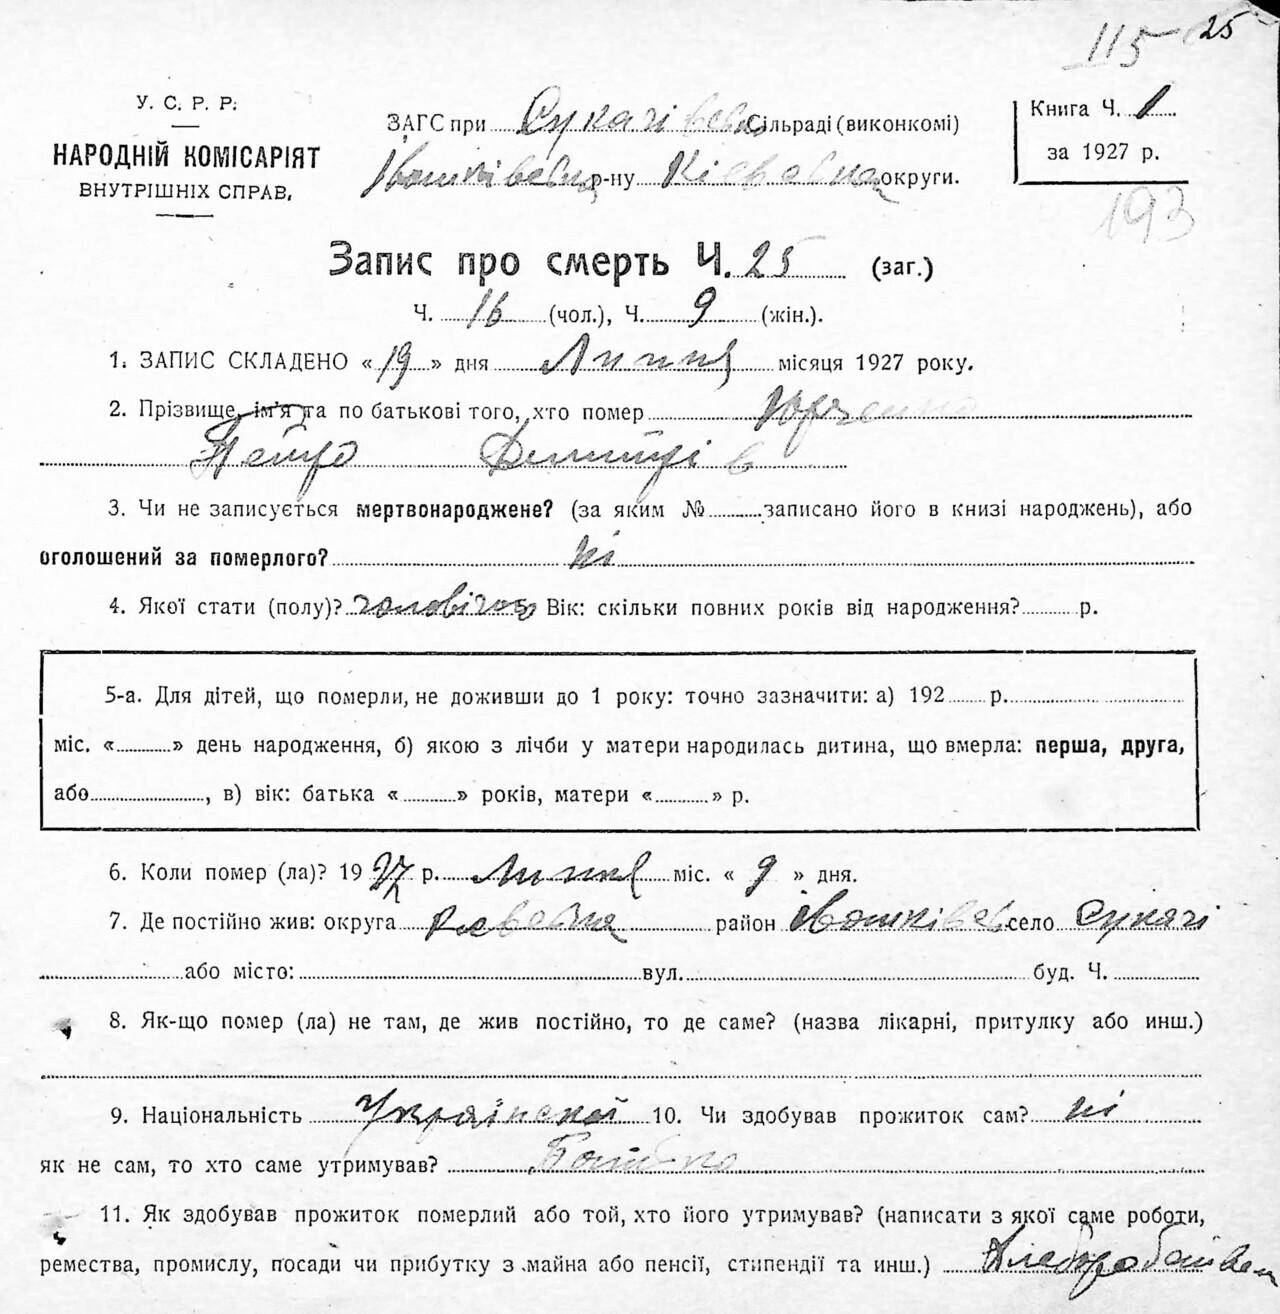 115 25
У. С. Р. Р.
НАРОДНІЙ КОМІСАРІЯТ
ВНУТРІШНІХ СПРАВ.
ЗАГС при Сукачівські Сільраді (виконкомі)
р-ну округи.
Книга Ч. 1
за 1927 р.
193
Запис про смерть Ч. 25 (заг.)
Ч. 16 (чол.), Ч. 9 (жін.).
1. ЗАПИС СКЛАДЕНО «19» дня Липня місяця 1927 року.
2. Прізвище, ім'я та по батькові того, хто помер Юрченко
Петро Дмитрів
3. Чи не записується мертвонароджене? (за яким № записано його в книзі народжень), або
оголошений за померлого? ні
4. Якої стати (полу)? Вік: скільки повних років від народження? р.
5-а. Для дітей, що померли, не доживши до 1 року: точно зазначити: а) 192 р.
міс. « » день народження, б) якою з лічби у матери народилась дитина, що вмерла: перша, друга,
або , в) вік: батька « » років, матери « » р.
6. Коли помер (ла)? 1927 р. Липня міс. « 9 » дня.
7. Де постійно жив: округа район село Сукачі
або місто: вул. буд. Ч.
8. Як-що помер (ла) не там, де жив постійно, то де саме? (назва лікарні, притулку або инш.)
9. Національність Української 10. Чи здобував прожиток сам? ні
як не сам, то хто саме утримував? Батько
11. Як здобував прожиток померлий або той, хто його утримував? (написати з якої саме роботи,
ремества, промислу, посади чи прибутку з майна або пенсії, стипендії та инш.)